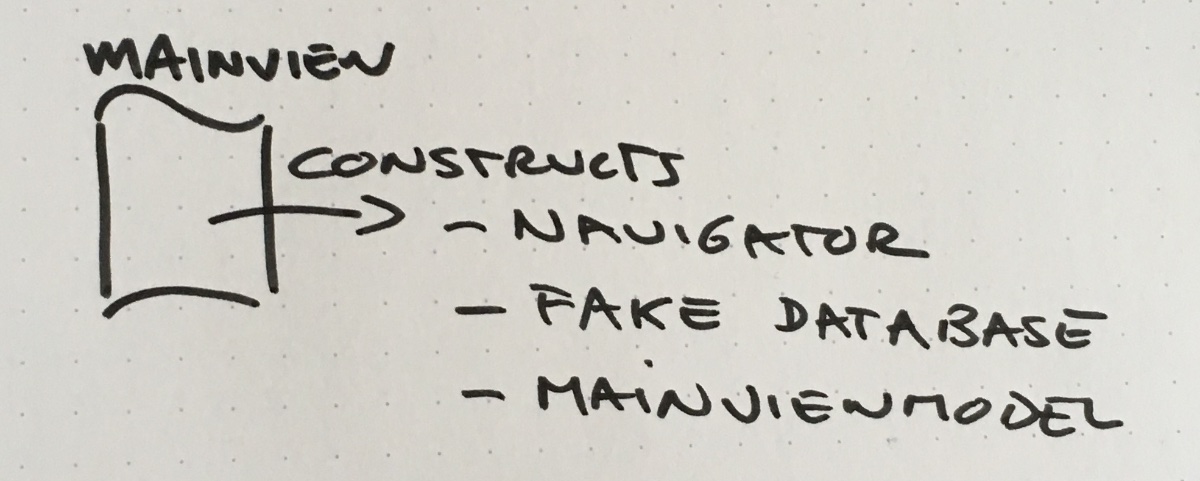 MAINVIEW
CONSTRUCTS
- NAVIGATOR
- FAKE DATABASE
- MAINVIEWMODEL